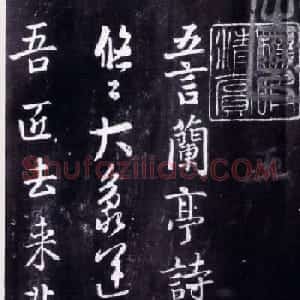 五言蘭亭詩
悠〻大象運
吾匠去来非
Shufaziliao.com